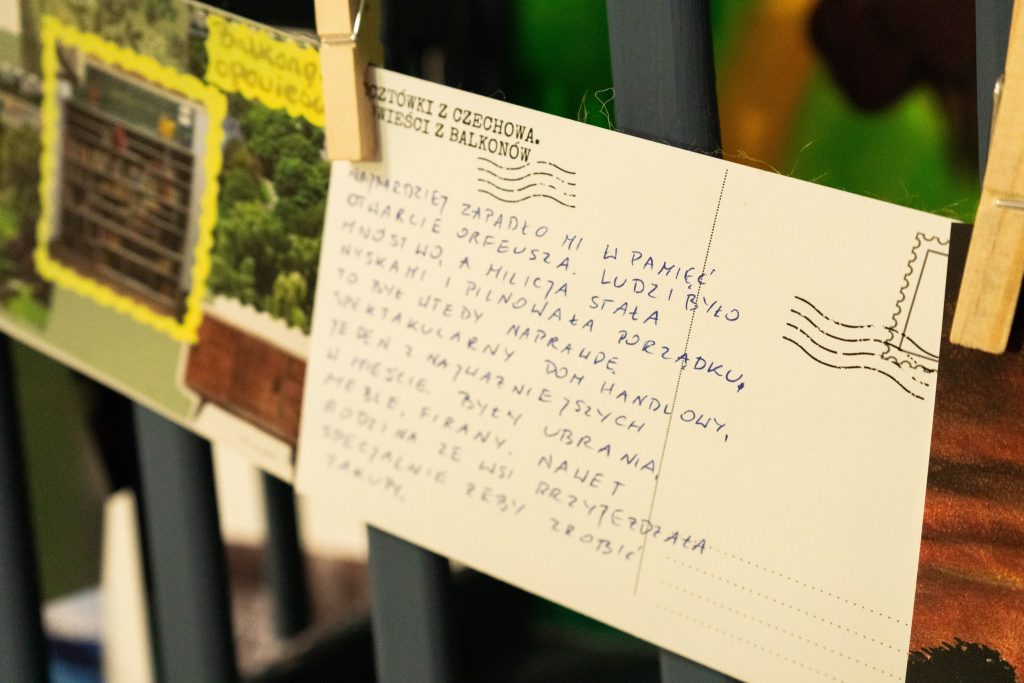 Balkony
OCZTÓWKI Z CZECHOWA.
OWIEŚCI Z BALKONÓW
NAJBARDZIEJ ZAPADŁO MI W PAMIĘĆ
OTWARCIE ORFEUSZA. LUDZI BYŁO
MNÓSTWO, A MILICJA STAŁA
NYSKAMI I PILNOWAŁA PORZĄDKU.
TO BYŁ WTEDY NAPRAWDĘ
SPEKTAKULARNY DOM HANDLOWY,
JEDEN Z NAJWAŻNIEJSZYCH
W MIEŚCIE. BYŁY UBRANIA,
MEBLE, FIRANY. NAWET
RODZINA ZE WSI PRZYJEŻDŻAŁA
SPECJALNIE ŻEBY ZROBIĆ
ZAKUPY.